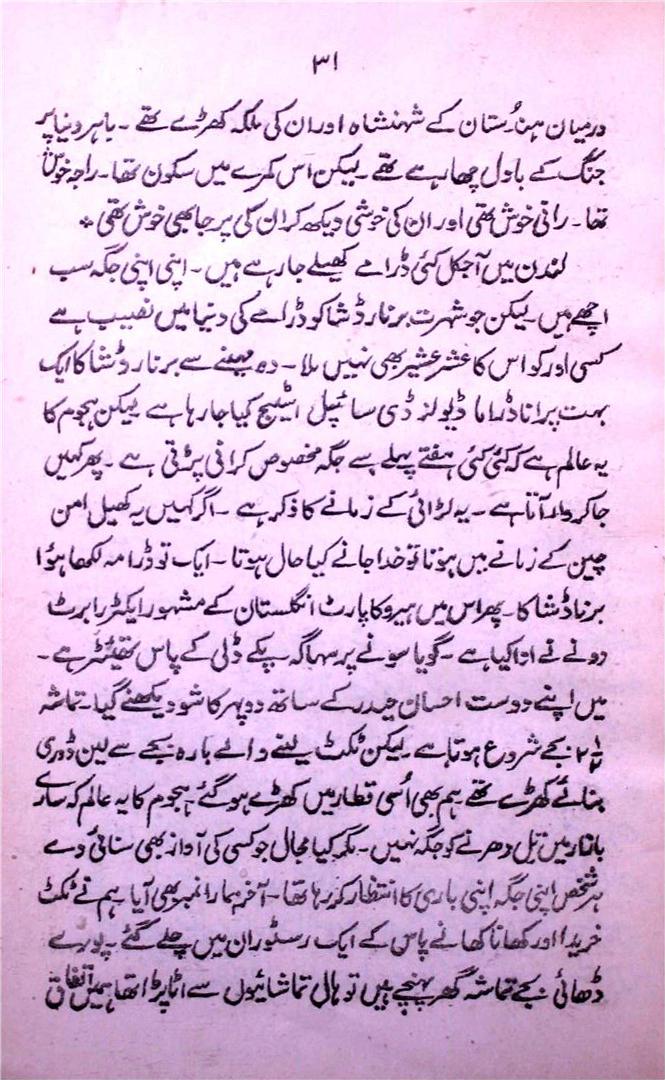 ۳۱
درمیان ہندُستان کے شہنشاہ اور ان کی ملکہ کھڑے تھے ۔ باہر دنیا پر
جنگ کے بادل چھا رہے تھے ۔ لیکن اس کمرے میں سکون تھا ۔ راجہ خوش
تھا ۔ رانی خوش تھی اور ان کی خوشی دیکھ کر ان کی پرجا بھی خوش تھی ÷
لندن میں آجکل کئی ڈرامے کھیلے جا رہے ہیں ۔ اپنی اپنی جگہ سب
اچھے ہیں ۔ لیکن جو شہرت برنارڈ شا کو ڈرامے کی دنیا میں نصیب ہے
کسی اور کو اس کا عشر عشیر بھی نہیں ملا ۔ دہ مہینے سے برنارڈ شا کا ایک
بہت پرانا ڈراما ڈیولز ڈی سائپل اسٹیج کیا جا رہا ہے لیکن ہجوم کا
یہ عالم ہے کہ کئی کئی ہفتے پہلے سے جگہ مخصوص کرانی پڑتی ہے ۔ پھر کہیں
جا کر وار آتا ہے ۔ یہ لڑائی کے زمانے کا ذکر ہے ۔ اگر کہیں یہ کھیل امن
چین کے زمانے میں ہوتا تو خدا جانے کیا حال ہوتا ۔ ایک تو ڈرامہ لکھا ہؤا
برناڈ شا کا ۔ پھر اس میں ہیرو کا پارٹ انگلستان کے مشہور ایکٹر رابرٹ
دونے نے ادا کیا ہے ۔ گویا سونے پر سہاگہ پکے ڈلی کے پاس تھیئٹر ہے ۔
میں اپنے دوست احسان حیدر کے ساتھ دوپہر کا شو دیکھنے گیا ۔ تماشہ
۲½ بجے شروع ہوتا ہے لیکن ٹکٹ لینے والے بارہ بجے سے لین ڈوری
بنائے کھڑے تھے ہم بھی اُسی قطار میں کھڑے ہو گئے ۔ ہجوم کا یہ عالم کہ سارے
بازار میں تل دھرنے کو جگہ نہیں ۔ مگر کیا مجال جو کسی کی آواز بھی سنائی دے
ہر شخص اپنی جگہ اپنی باری کا انتظار کر رہا تھا ۔ آخر ہمارا نمبر بھی آیا ہم نے ٹکٹ
خریدا اور کھانا کھانے پاس کے ایک رسٹوران میں چلے گئے ۔ پورے
ڈھائی بجے تماشہ گھر پہنچے ہیں تو ہال تماشائیوں سے اٹا پڑا تھا ہمیں اتفاق